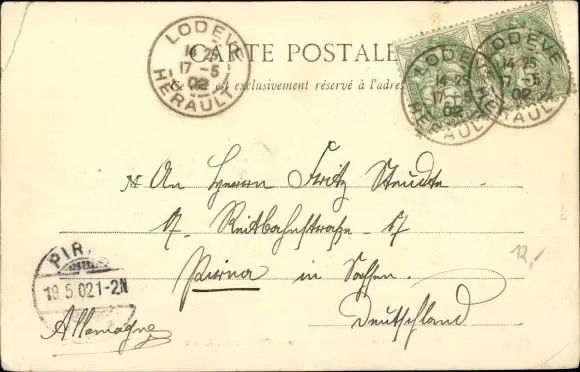 LODEVE
14 25
17 - 5
02
HERAULT
CARTE POSTALE
Ce côté est exclusivement réservé à l'adres
LODEVE
14 25
17 - 5
02
HERAULT
LODEVE
14 25
7 - 5
02
HERAULT
An Herrn Fritz Steudte
17. Reitbahnstraße 17
Pirna in Sachsen.
Deutschland
Allemagne
PIR
19.5.02 1-2N
12,-